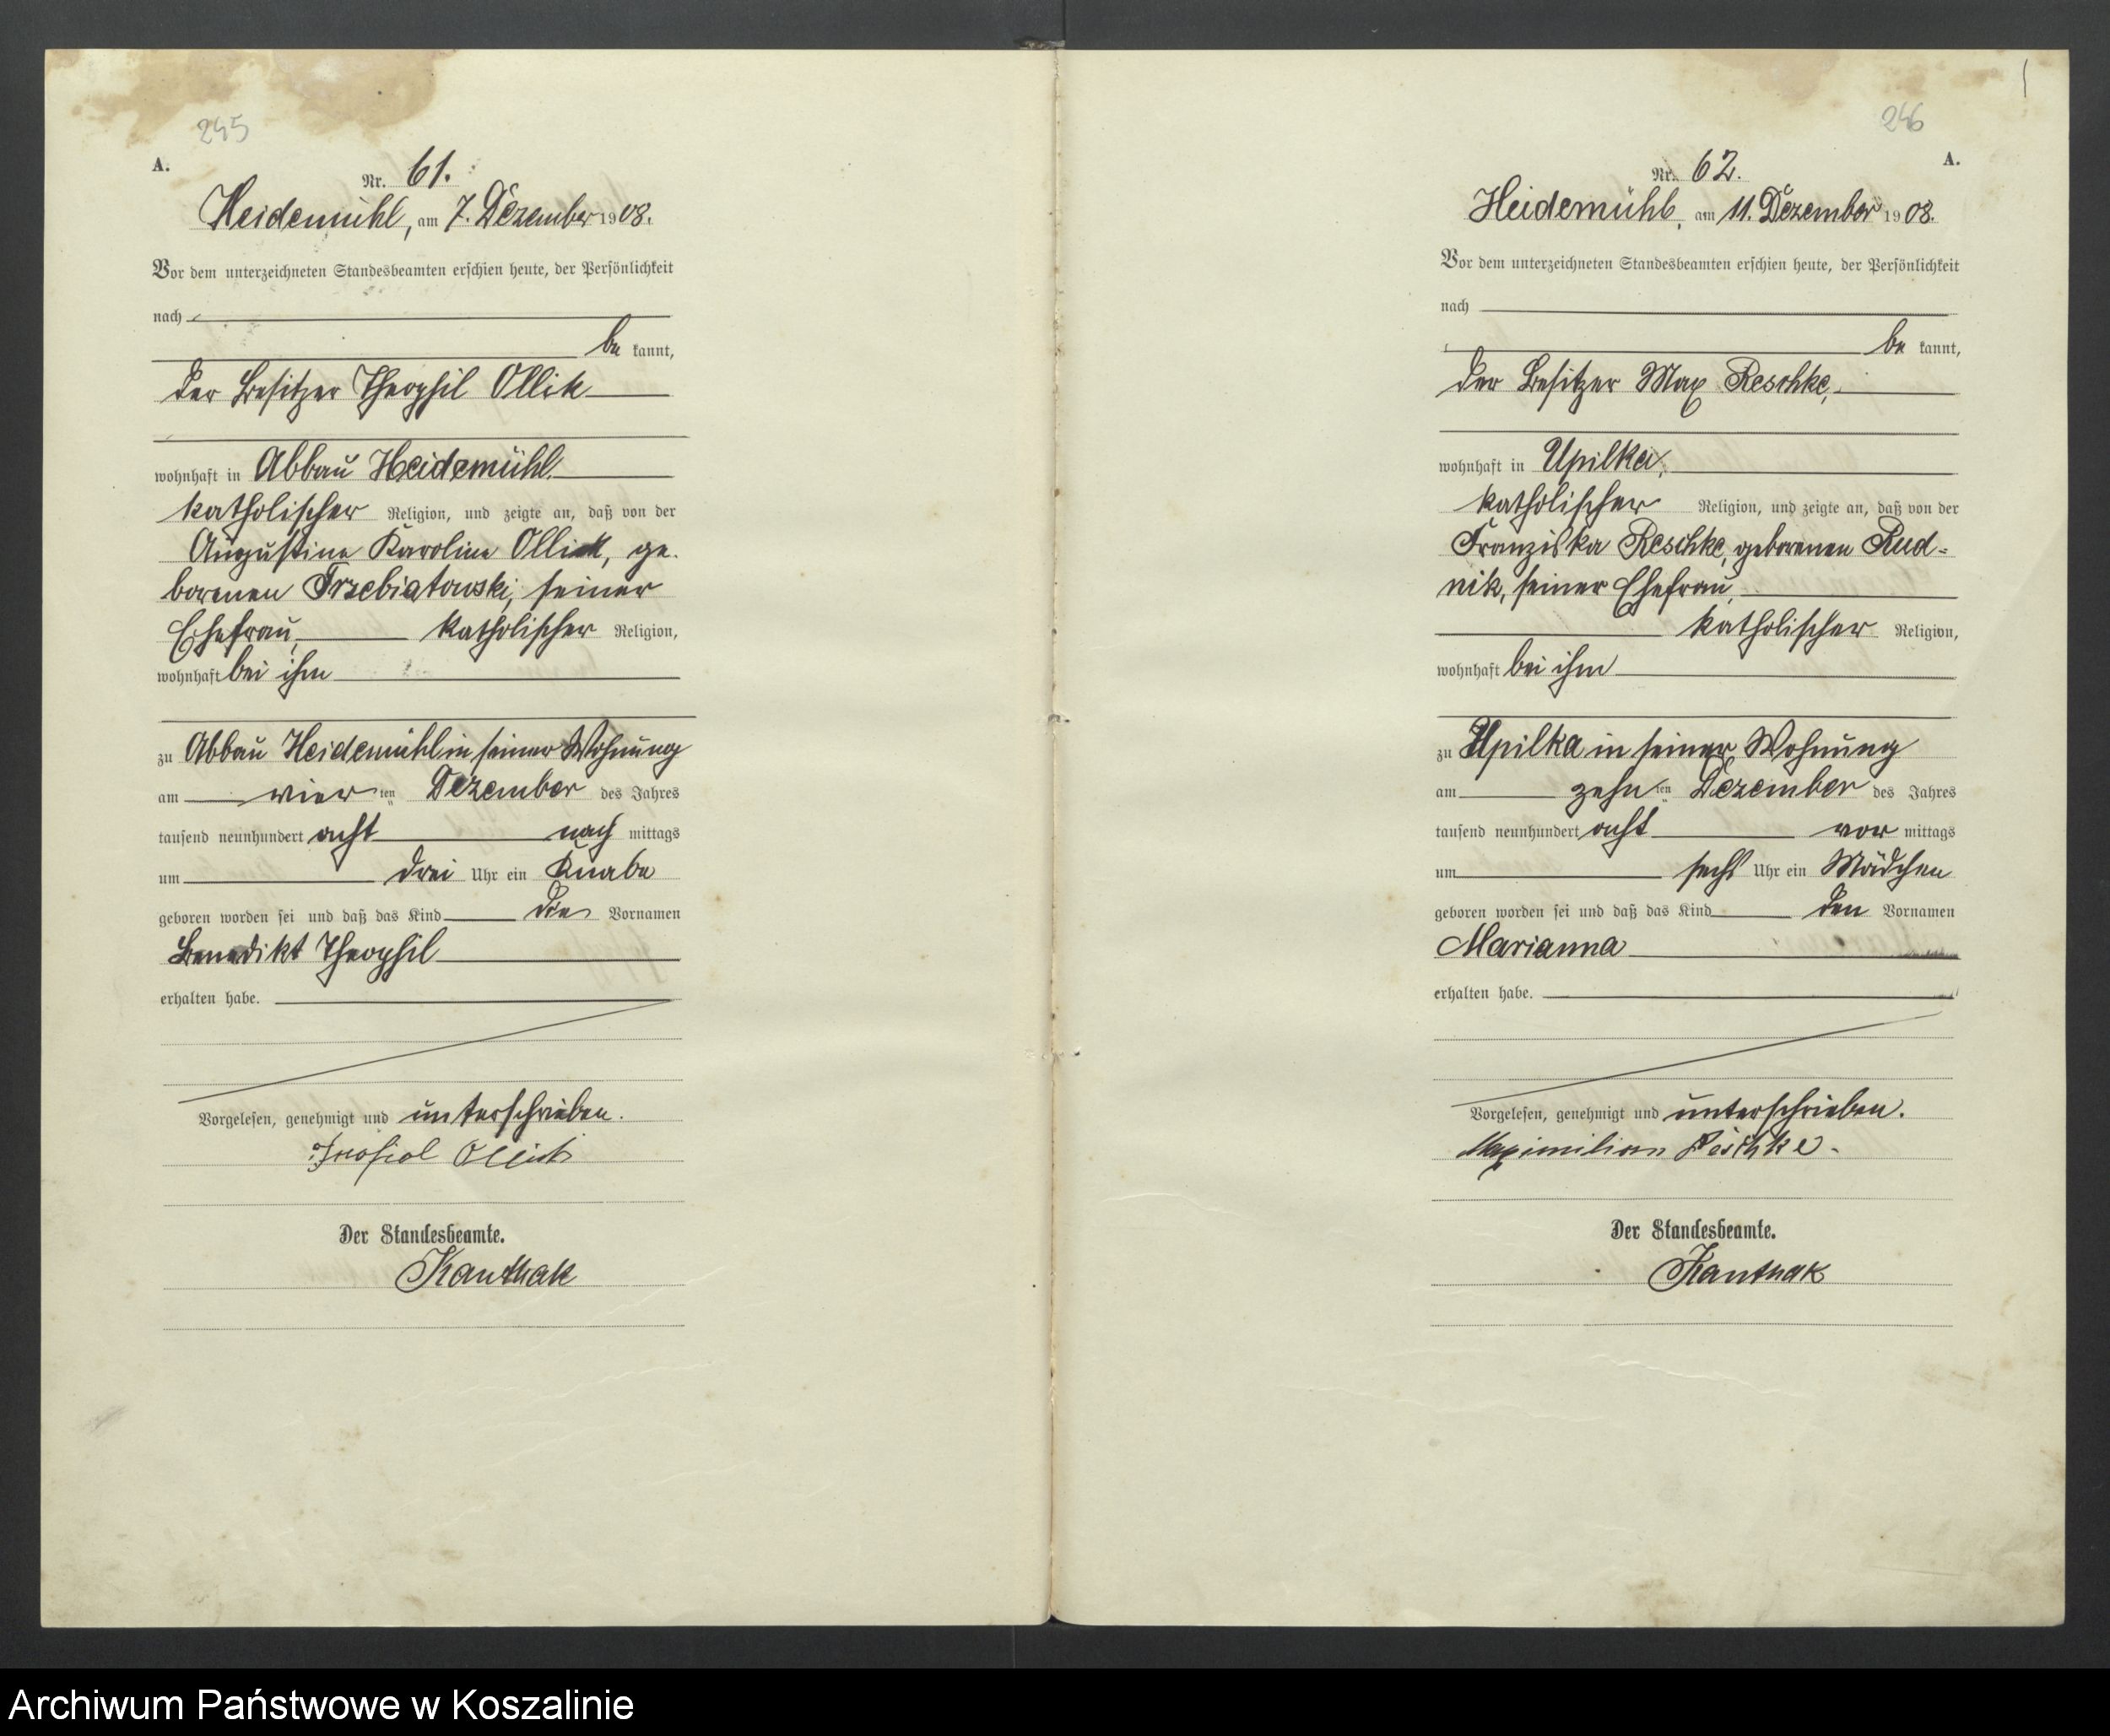 245
A.
Nr. 61.
Heidemühl, am 7. Dezember 1908.
Vor dem unterzeichneten Standesbeamten erschien heute, der Persönlichkeit
nach
be kannt,
der Besitzer Theophil Ollik
wohnhaft in Abbau Heidemühl
katholischer Religion, und zeigte an, daß von der
Augustine Karoline Ollick, ge-
borenen Trzebiatowski, seiner
Ehefrau, katholischer Religion,
wohnhaft bei ihm
zu Abbau Heidemühl in seiner Wohnung
am vier ten Dezember des Jahres
tausend neunhundert acht nach mittags
um drei Uhr ein Knabe
geboren worden sei und daß das Kind die Vornamen
Benedikt Theophil
erhalten habe.
Vorgelesen, genehmigt und unterschrieben.
Ollick
Der Standesbeamte.
Kanthak
246
A.
Nr. 62.
Heidemühl, am 11. Dezember 1908.
Vor dem unterzeichneten Standesbeamten erschien heute, der Persönlichkeit
nach
be kannt,
der Besitzer Max Reschke,
wohnhaft in Upilka,
katholischer Religion, und zeigte an, daß von der
Franziska Reschke, geborenen Rud-
nik, seiner Ehefrau,
katholischer Religion,
wohnhaft bei ihm
zu Upilka in seiner Wohnung
am zehn ten Dezember des Jahres
tausend neunhundert acht vor mittags
um sechs Uhr ein Mädchen
geboren worden sei und daß das Kind den Vornamen
Marianna
erhalten habe.
Vorgelesen, genehmigt und unterschrieben.
Maximilian Reschke.
Der Standesbeamte.
Kanthak
Archiwum Państwowe w Koszalinie